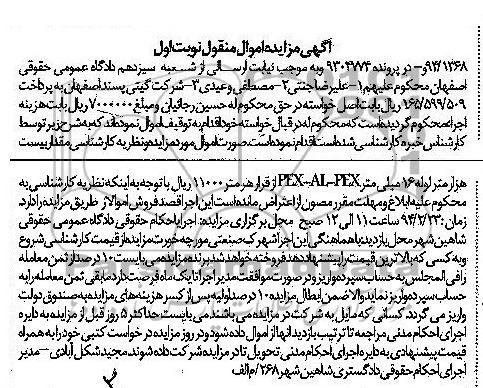 آگهی مزایده اموال منقول نوبت اول
۹۴/۱۲۶۸و- در پرونده ۹۳۰۴۷۷۴ وبه موجب نیابت ارسالی از شعبه سیزدهم دادگاه عمومی حقوقی
اصفهان محکوم علیهم ۱-علیرضا جنتی ۲-مصطفی وعیدی ۳- شرکت گیتی پسند اصفهان به پرداخت
۱۶۵/۵۹۹/۵۰۹ ریال بابت اصل خواسته در حق محکوم له حسین رجائیان و مبلغ ۷۰۰۰۰۰۰ ریال بابت هزینه
اجرا محکوم گردیده است که محکوم له در قبال خواسته خود اقدام به توقیف اموال نموده اند که به شرح زیر توسط
کارشناس خبره کارشناسی شده است اقدام نموده است. صورت اموال مورد مزایده و نظریه کارشناسی مقدار بیست
هزار متر لوله ۱۶ میلی متر PEX-AL-PEX از قرار هر متر ۱۱۰۰۰ ریال با توجه به اینکه نظریه کارشناسی به
محکوم علیه ابلاغ و مهلت مقرر مصون از اعتراض مانده است این اجرا قصد فروش اموال از طریق مزایده را دارد.
زمان: ۹۴/۲/۲۳ ساعت ۱۱ الی ۱۲ صبح محل برگزاری مزایده: اجرا احکام حقوقی دادگاه عمومی حقوقی
شاهین شهر محل بازدید: با هماهنگی این اجرا شهرک صنعتی مورچه خورت مزایده از قیمت کارشناسی شروع
و به کسی که بالاترین قیمت را پیشنهاد دهد فروخته خواهد شد برنده مزایده می بایست ۱۰ درصد از ثمن معامله
را فی المجلس به حساب سپرده واریز و در صورت موافقت مدیر اجرا تا یک ماه فرصت دارد مابقی ثمن معامله را به
حساب سپرده واریز نماید والا ضمن ابطال مزایده ۱۰ درصد اولیه پس از کسر هزینه های مزایده به صندوق دولت
واریز می گردد. کسانی که مایل به شرکت در مزایده می باشند می بایست حداکثر ۵ روز قبل از مزایده به دایره
اجرای احکام مدنی مراجعه تا ترتیب بازدید آنها از اموال داده شود و در روز مزایده در خواست کتبی خود را به همراه
قیمت پیشنهادی به دایره اجرای احکام مدنی تحویل تا در مزایده شرکت داده شوند. مجید شکل آبادی - مدیر
اجرای احکام حقوقی دادگستری شاهین شهر ۲۶۸/م الف